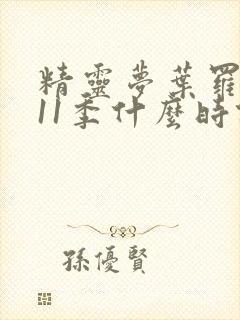 精靈夢葉羅
11季什麼時
孫優賢